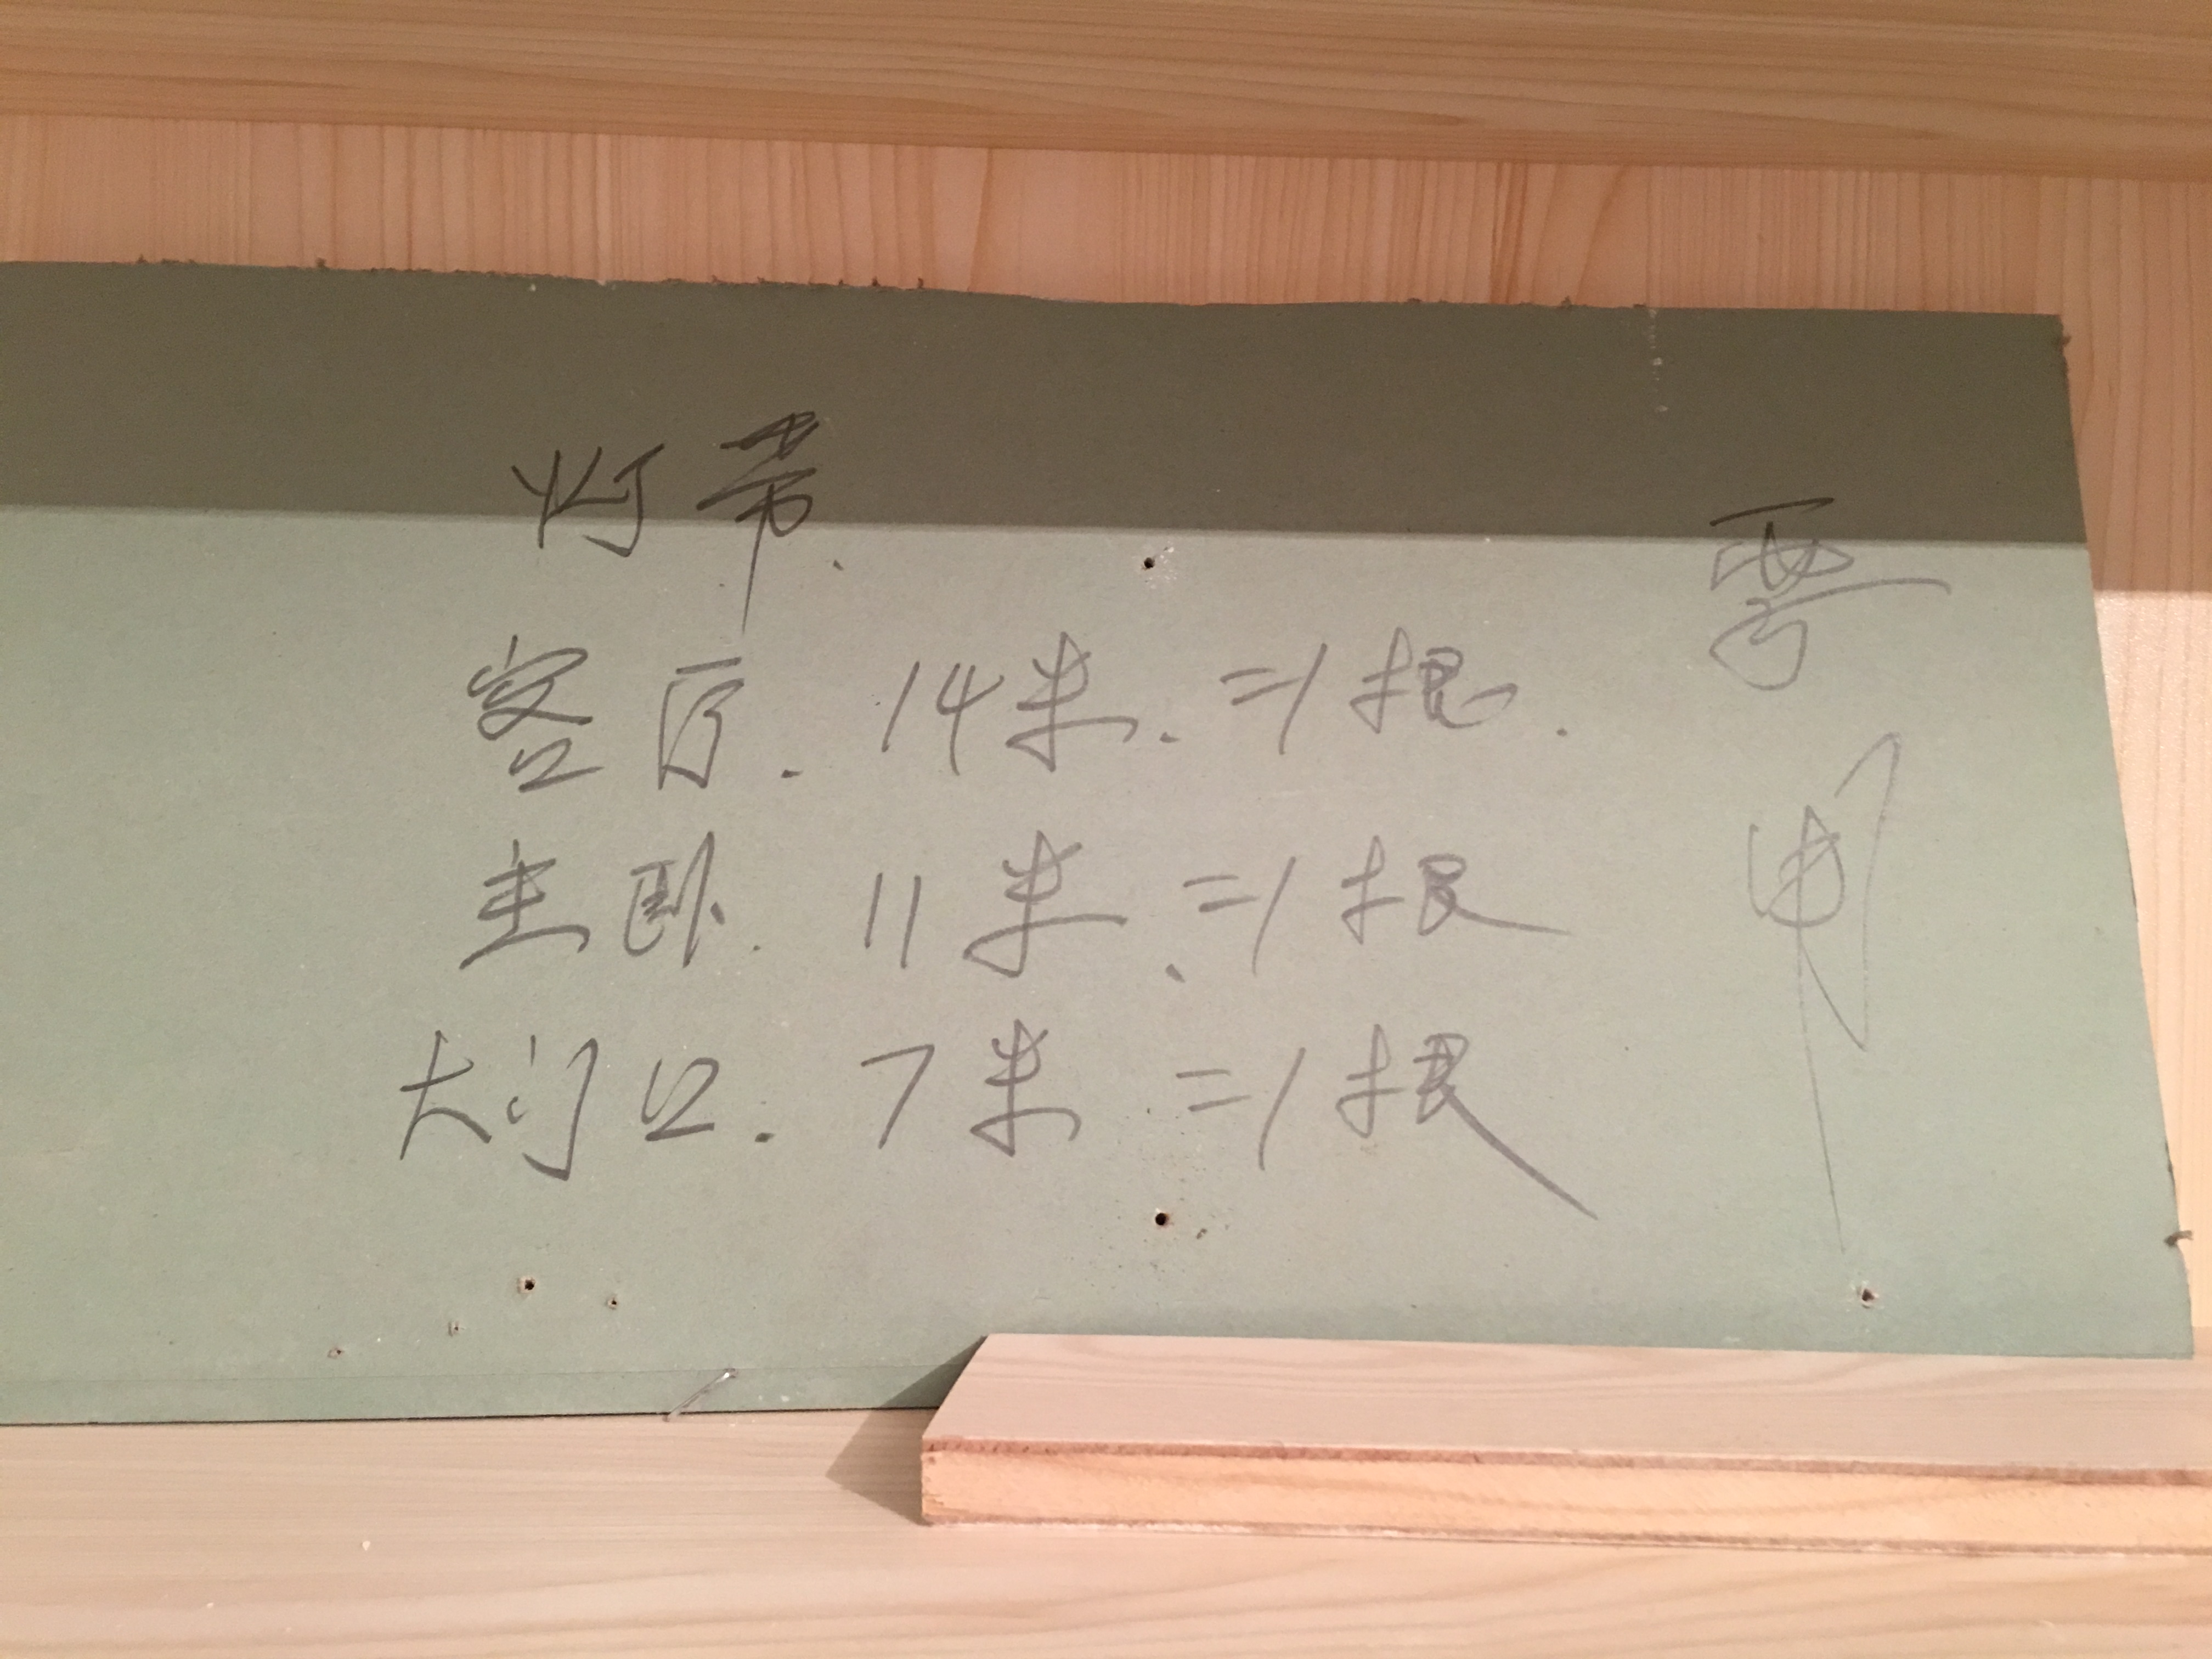 灯带.
客厅. 14米. =1根.
主卧. 11米. =1根
大门口. 7米 =1根